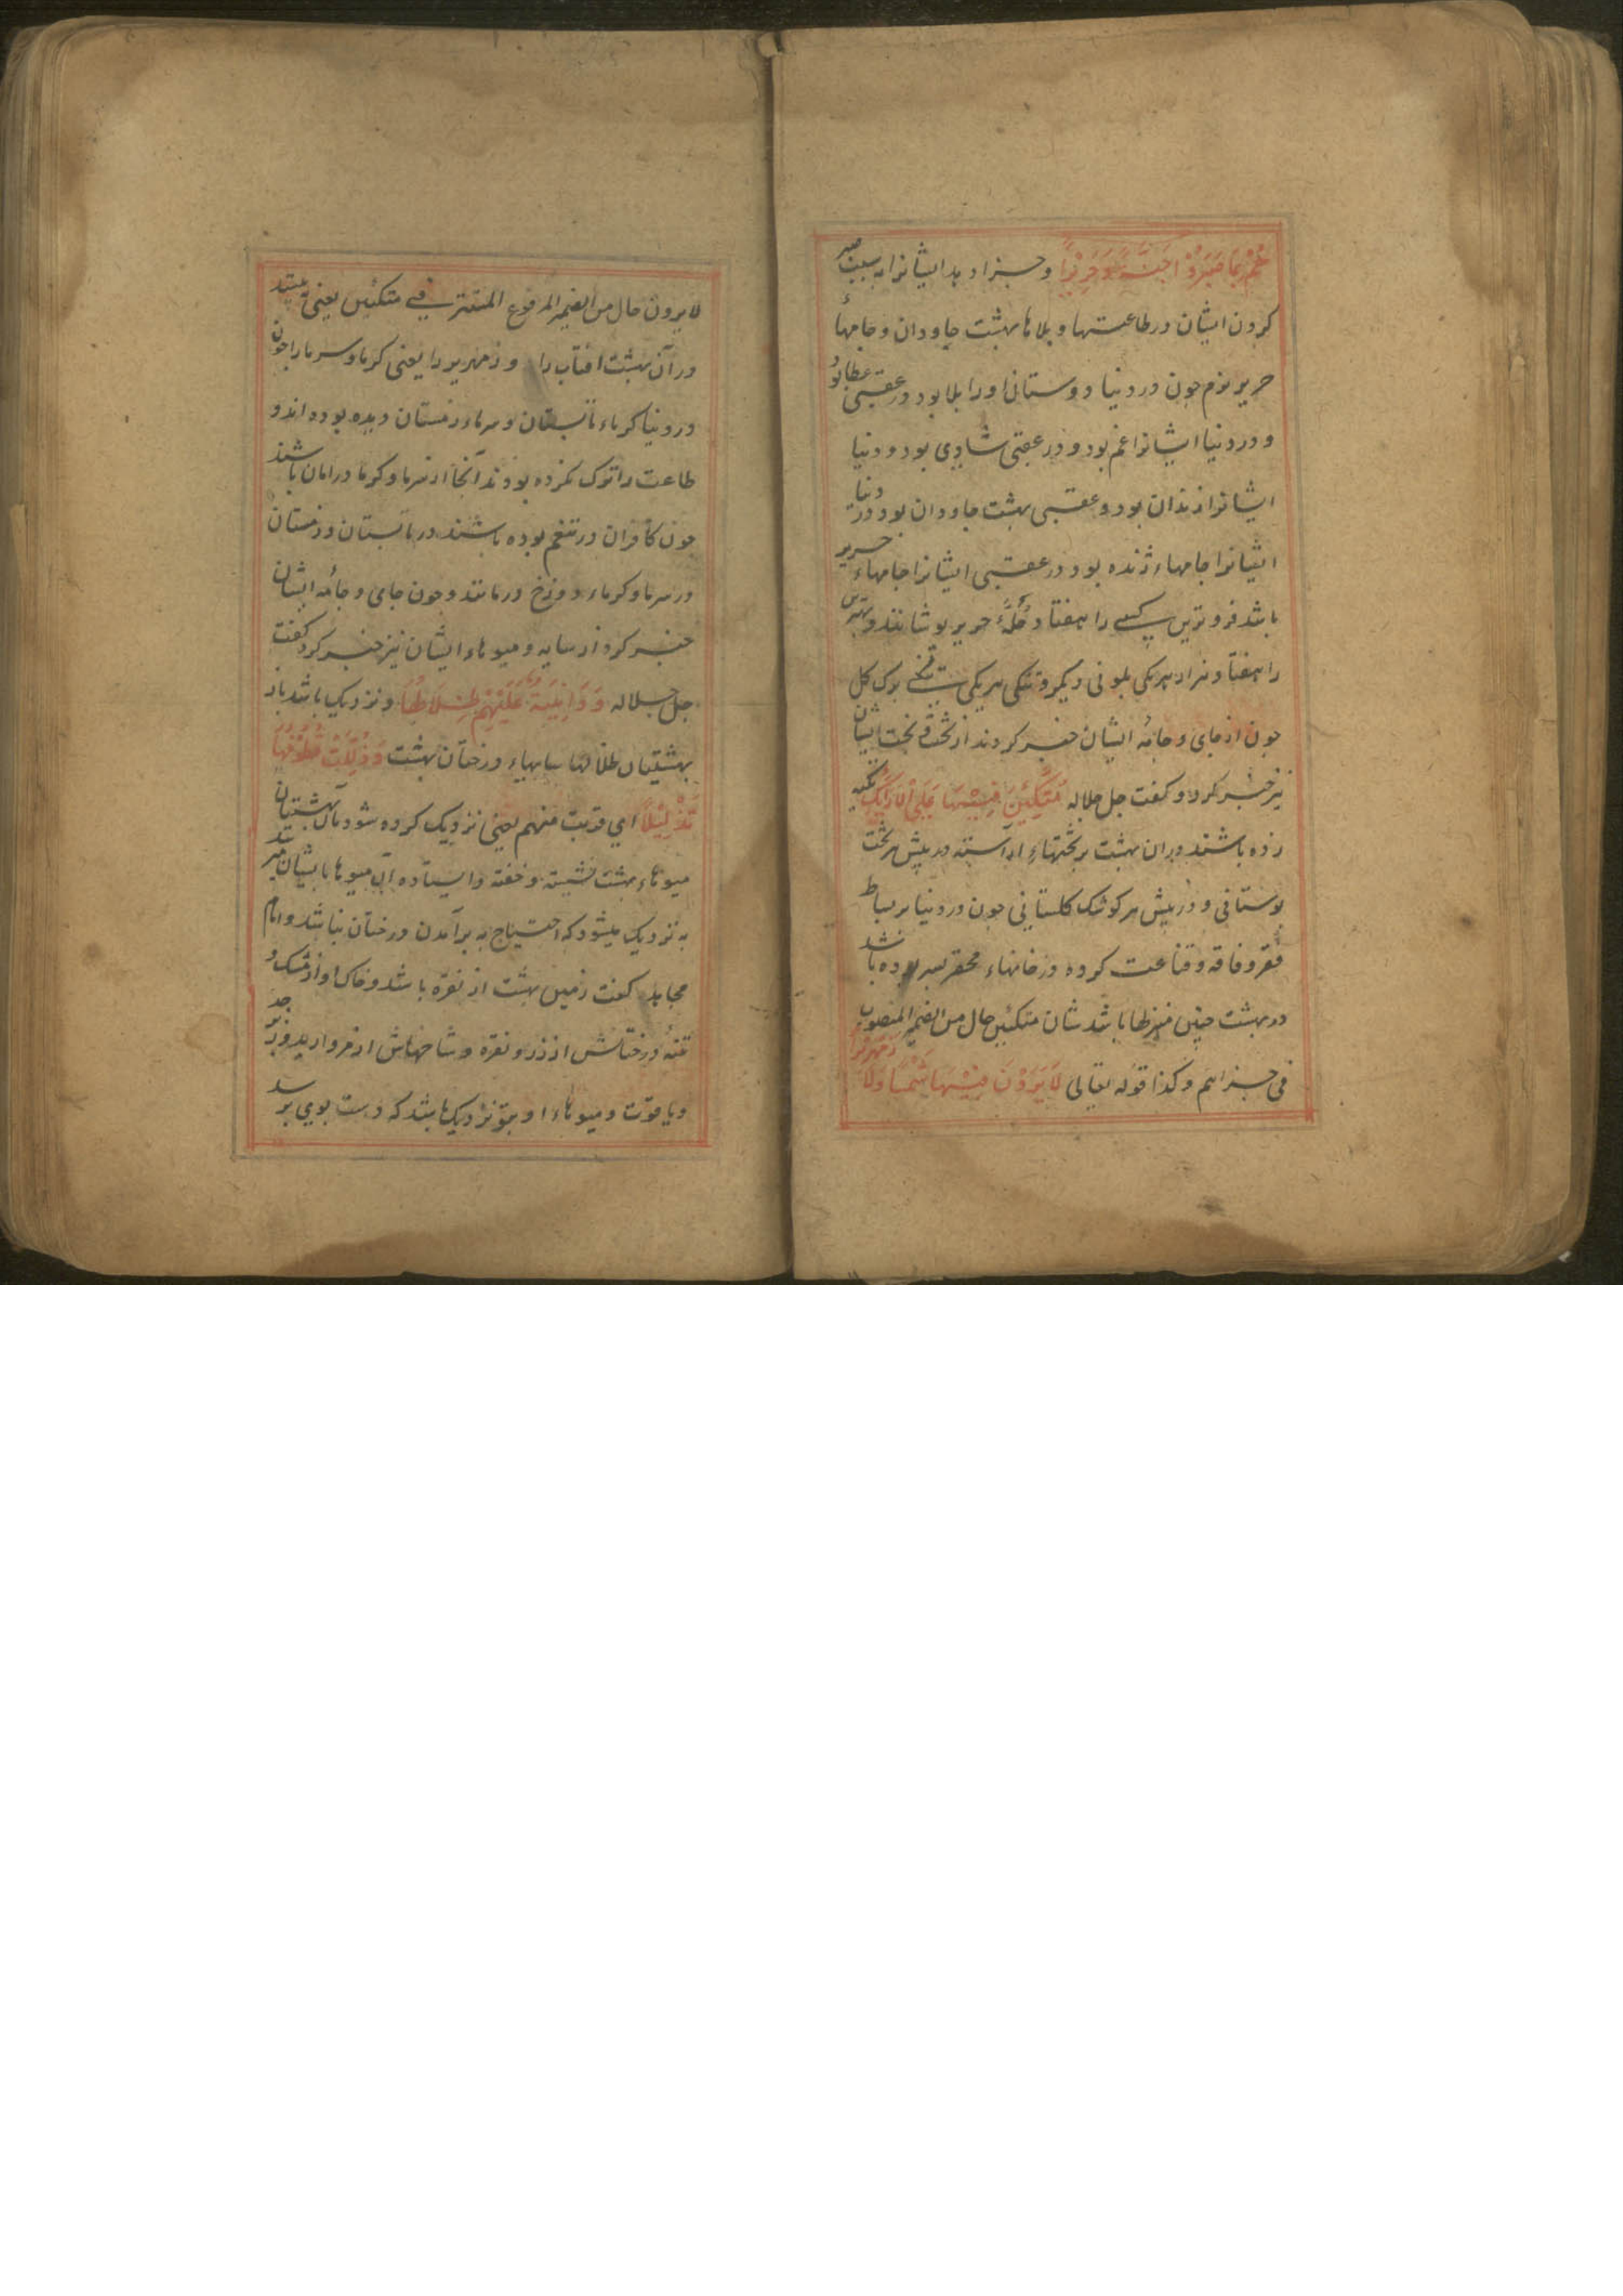 هُمْ بِمَا صَبَرُوْا جَنَّةً وَحَرِيْرًا و جزا دهد ایشانرا به سبب صبر
کردن ایشان در طاعتها و بلاها بهشت جاودان و جامهاء
حریر نرم چون در دنیا دوستانرا درا بلا بود در عقبی عطا بود
و در دنیا ایشانرا غم بود و در عقبی شادی بود و دنیا
ایشانرا زندان بود و عقبی بهشت جاودان بود و در دنیا
ایشانرا جامهاء ژنده بود و در عقبی ایشانرا جامهاء حریر
باشد فروترین کسے را هفتاد حُلَّهٔ حریر پوشانند و بهترین
را هفتاد هزار هریکی بلونی دیگر و تنکی هریکی برک کل
چون از جای و جامهٔ ایشان خبر کردند از تخت ایشان
نیز خبر کرد و کفت جل جلاله مُتَّكِئِينَ فِيْهَا عَلَى الْاَرَائِكِ تکیه
زده باشند دران بهشت بر تختهاءِ آراسته در پیش هر تخت
بوستانی و در پیش هر کوشک کلستانی چون در دنیا بر بساط
فقر و فاقه و قناعت کرده در خانهاء محقر بسر برده باشند
در بهشت چنین منزلها باشد شان متکئین حال من الضمیر المنصوب
فی جزاهم و کذا قوله تعالی لَا يَرَوْنَ فِيْهَا شَمْسًا وَلَا زَمْهَرِيْرًا
لایرون حال من الضمیر المرفوع المستتر فے متکئین یعنی نه بینند
در آن بهشت آفتاب را و زمهریر را یعنی کرما و سرما را چون
در دنیا کرماء تابستان و سرماء زمستان دیده بوده اند و
طاعت را ترک نکرده بودند آنجا از سرما و کرما در امان باشند
چون کافران در تنعم بوده باشند در تابستان و زمستان
در سرما و کرماء دوزخ درمانند و چون جای و جامهٔ ایشان
خبر کرد از سایه و میوهاء ایشان نیز خبر کرد کفت
جل جلاله وَدَانِيَةً عَلَيْهِمْ ظِلَالُهَا و نزدیک باشد بر
بهشتیان ظلالها سایهاء درختان بهشت وَذُلِّلَتْ قُطُوْفُهَا
تَذْلِيْلًا ای قربت منهم یعنی نزدیک کرده شود بر بهشتیان
میوهاء بهشت نشسته و خفته و ایستاده آن میوها بایشان
به نزدیک میشود که احتیاج به برآمدن درختان نباشد و امام
مجاهد کفت زمین بهشت از نقره باشد و خاک او از مشک و
تنهٔ درختانش از زر و نقره و شاخهاش از مروارید و زبرجد
و یاقوت و میوهاء او بتو نزدیک باشد که دست بوی برسد